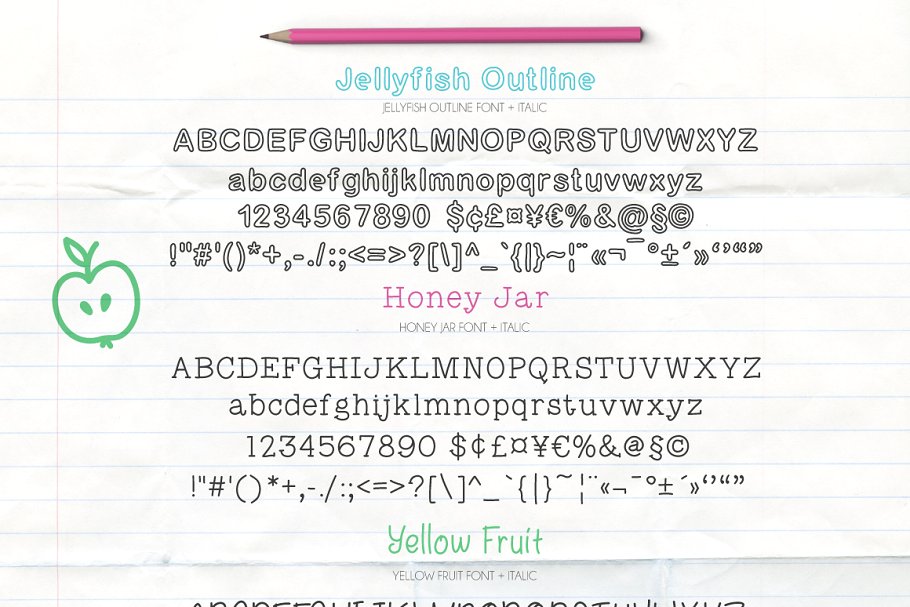 Jellyfish Outline
JELLYFISH OUTLINE FONT + ITALIC
ABCDEFGHIJKLMNOPQRSTUVWXYZ
abcdefghijklmnopqrstuvwxyz
1234567890 $¢£¤¥€%&@§©
!"#'()*+,-./:;<=>?[\]^_`{|}~¦¨«¬¯°±´»‘’“”
Honey Jar
HONEY JAR FONT + ITALIC
ABCDEFGHIJKLMNOPQRSTUVWXYZ
abcdefghijklmnopqrstuvwxyz
1234567890 $¢£¤¥€%&@§©
!"#'()*+,-./:;<=>?[\]^_`{|}~¦¨«¬¯°±´»‘’“”
Yellow Fruit
YELLOW FRUIT FONT + ITALIC
ABCDEFGHIJKLMNOPQRSTUVWXYZ